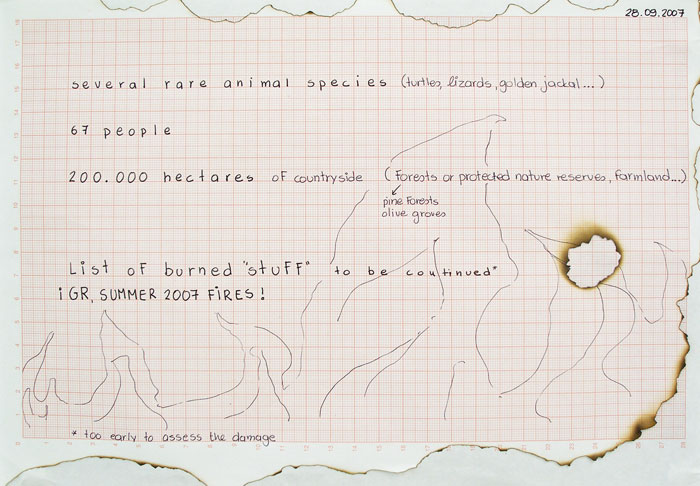 28.09.2007
several rare animal species (turtles, lizards, golden jackal...)
67 people
200.000 hectares of countryside (Forests or protected nature reserves, farmland...)
pine forests
olive groves
List of burned "stuff" to be continued*
¡GR, SUMMER 2007 FIRES!
* too early to assess the damage